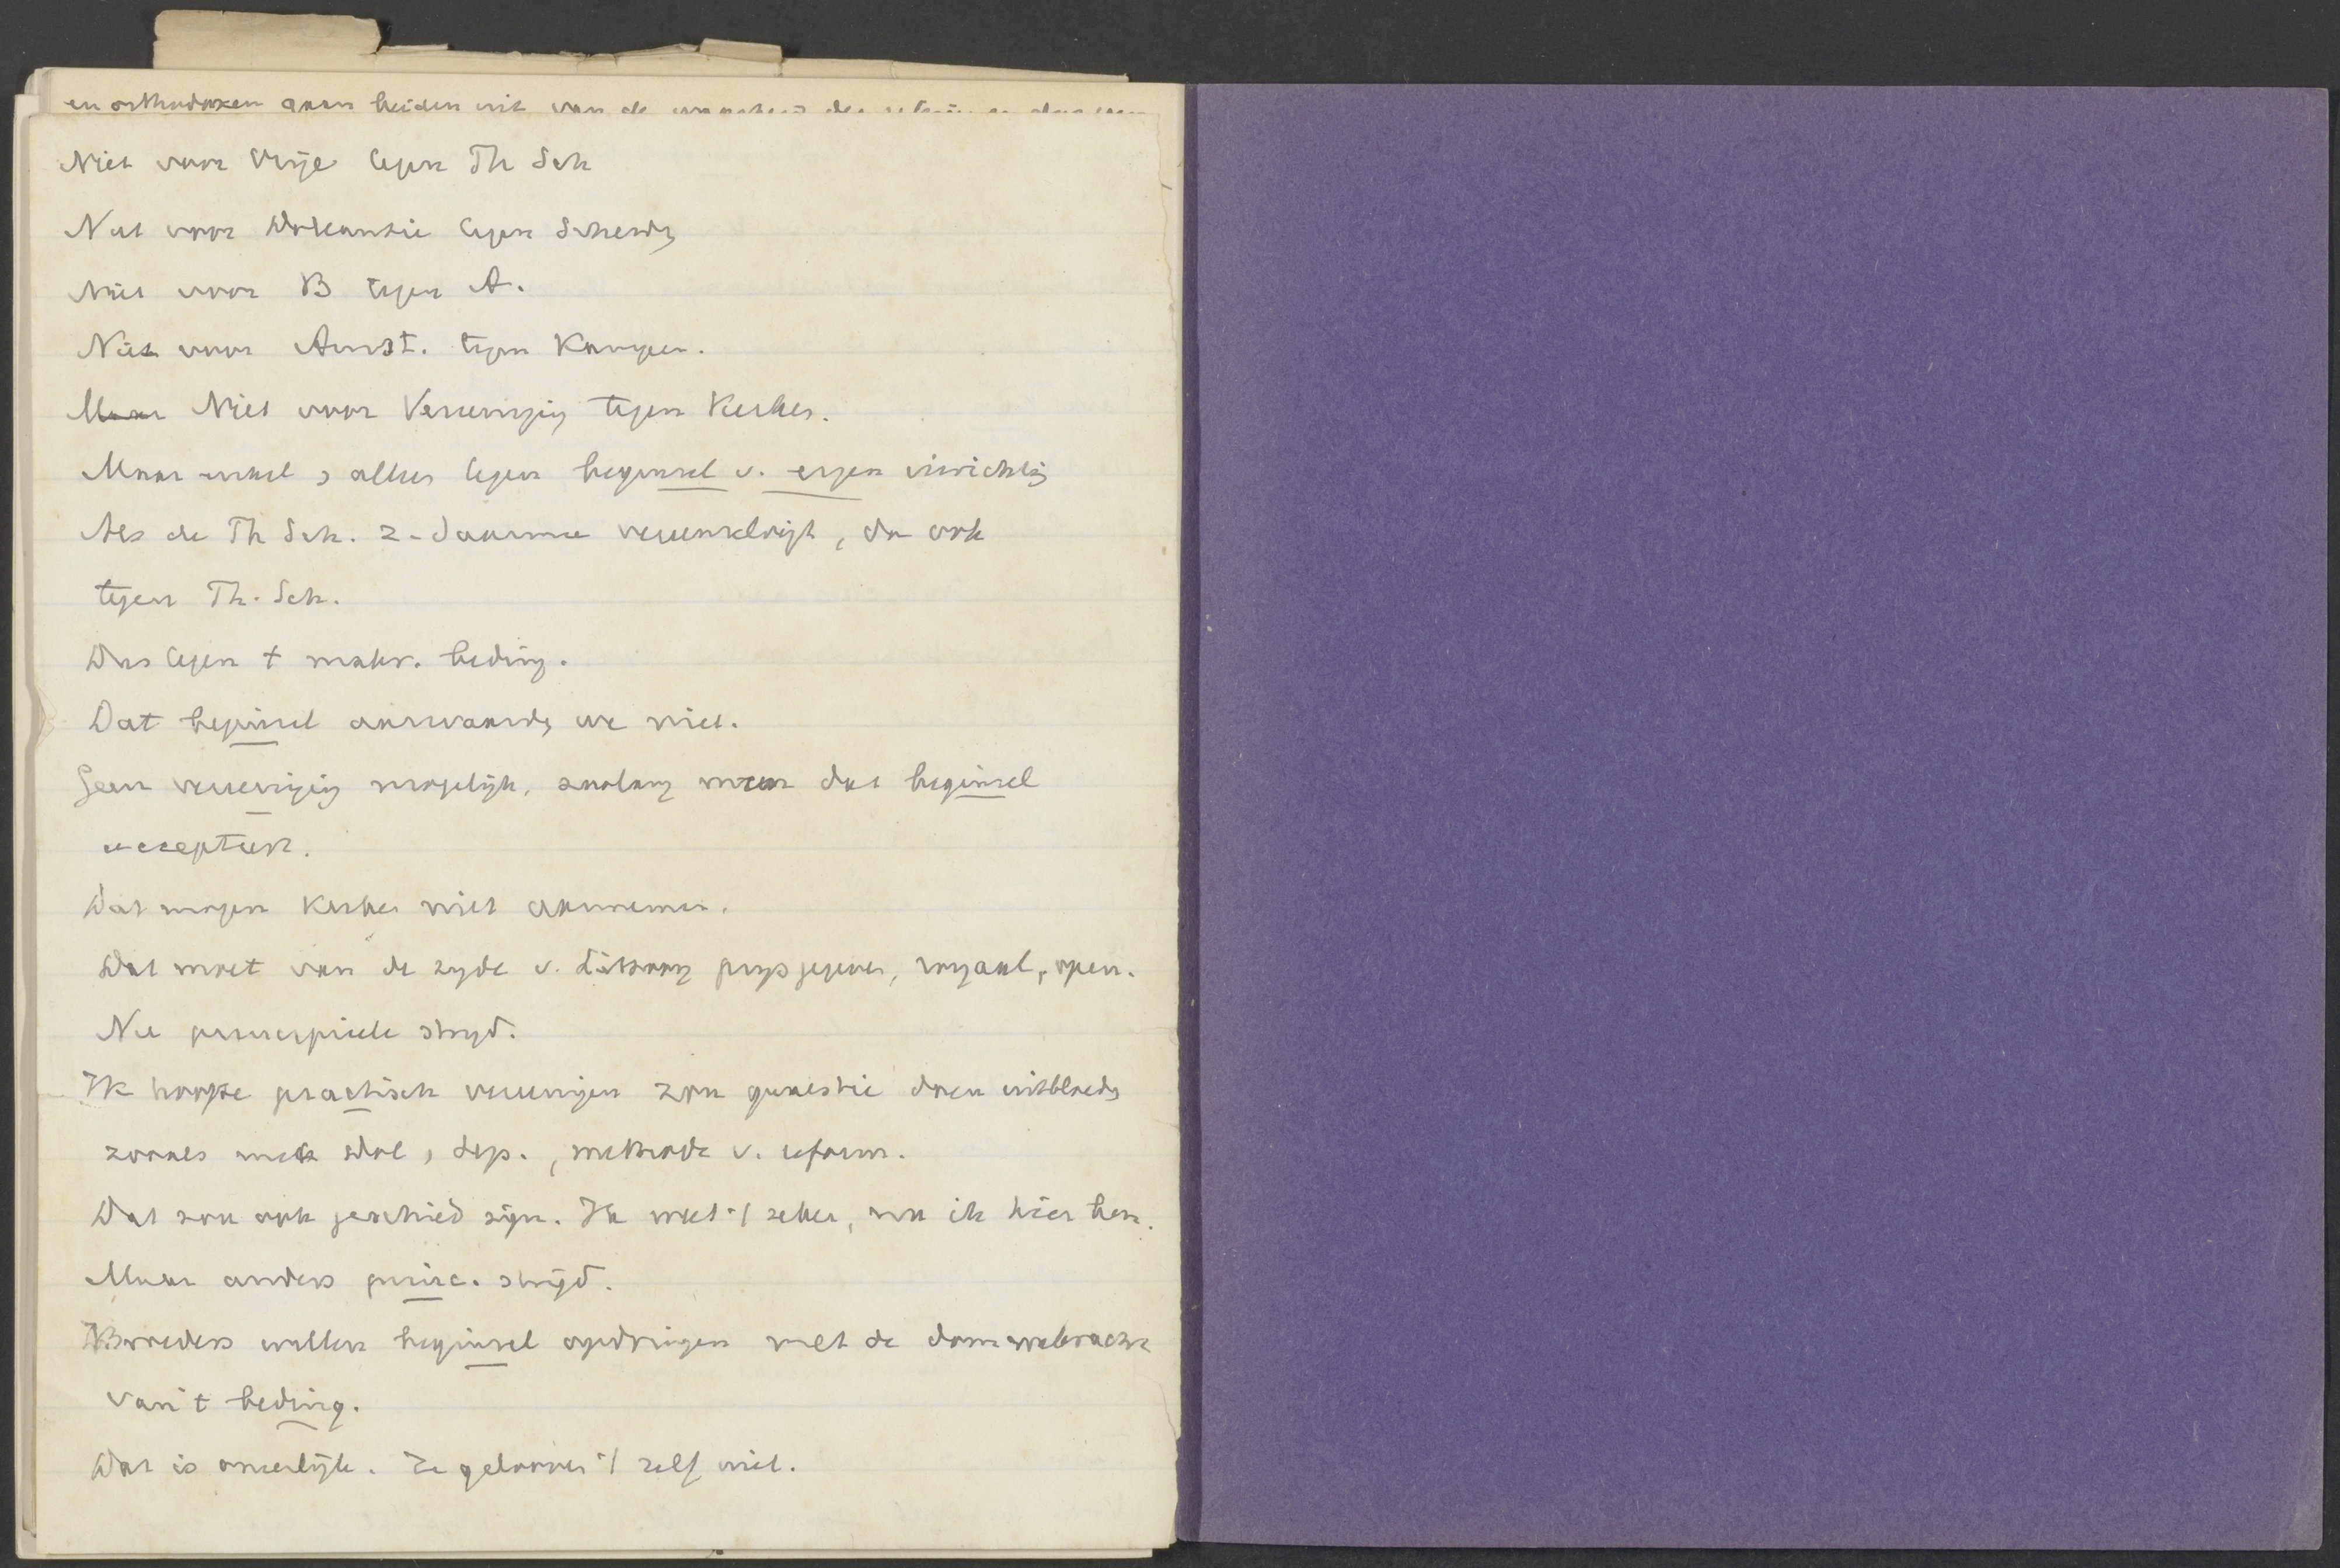 en orthodoxen gaan beiden uit van de
Niet voor Vrije tegen Th Sch
Niet voor Doleantie tegen Scheidg
Niet voor B tegen A.
Niet voor Amst. tegen Kampen.
Maar Niet voor Vereeniging tegen Kerken.
Maar enkel & alleen tegen beginsel v. eigen inrichtig
Als de Th Sch. z. daarmee vereenzelvigt, dan ook
tegen Th. Sch.
Dus tegen 't beding.
Dat beginsel aanvaarde we niet.
Geen vereeniging mogelijk, zoolang men dat beginsel
accepteert.
Dat mogen Kerken niet aannemen.
Dat moet van de zyde v. prys gegeven, royaal, open.
Nu principieele stryd.
Ik hoopte practisch vereenigen zou quaestie doen uitbloede
zooals met Dol, Sep., methode v. reform.
Dat zou ook geschied zijn. Ik weet 't zeker, nu ik hier ben.
Maar anders princ. strijd.
Broeders willen beginsel opdringen met de dommekracht
van 't beding.
Dat is oneerlijk. Ze gelooven 't zelf niet.